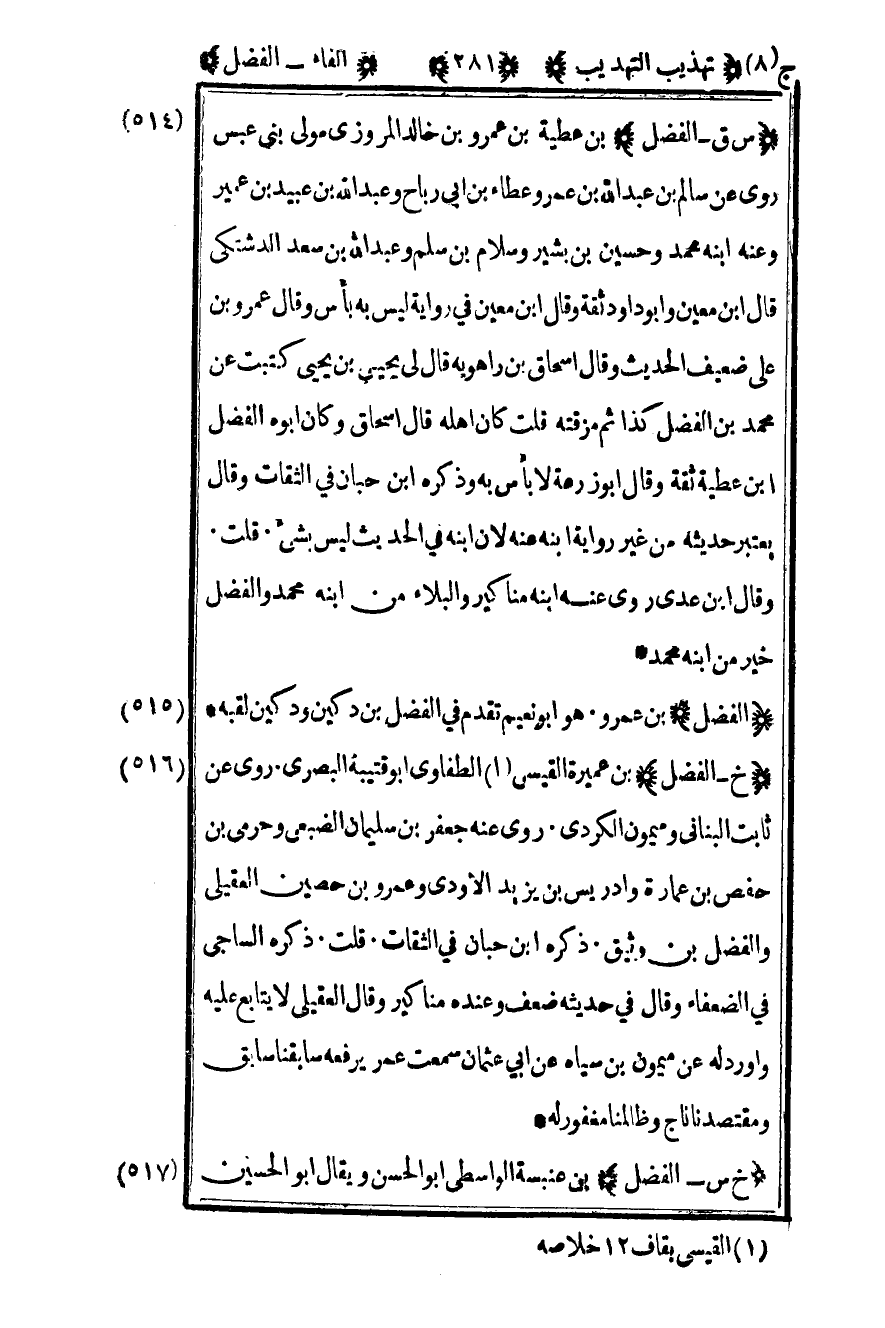 ج(٨) ﴿ تهذيب التهديب ﴾ ﴿٢٨١﴾ ﴿ الفاء ــ الفضل ﴾
﴿ س ق ـ الفضل ﴾ بن عطية بن عمرو بن خالد المروزى مولى بني عبس (٥١٤)
روى عن سالم بن عبدالله بن عمر وعطاء بن ابي رباح وعبدالله بن عبيد بن عمير
وعنه ابنه محمد وحسين بن بشير وسلام بن سلم وعبدالله بن سعد الدشتكى
قال ابن معين وابوداود ثقة وقال ابن معين في رواية ليس به بأس وقال عمرو بن
على ضعيف الحديث وقال اسحاق بن راهويه قال لى يحيى بن يحيى كتبت عن
محمد بن الفضل كذا ثم مزقته قلت كان اهله قال اسحاق وكان ابوه الفضل
ابن عطية ثقة وقال ابوزرعة لا بأس به وذكره ابن حبان في الثقات وقال
يعتبر حديثه من غير رواية ابنه عنه لان ابنه في الحديث ليس بشئ ٠ قلت ٠
وقال ابن عدى روى عنه ابنه مناكير والبلاء من ابنه محمد والفضل
خير من ابنه محمد *
﴿ الفضل ﴾ بن عمرو ٠ هو ابونعيم تقدم في الفضل بن دكين ودكين لقبه * (٥١٥)
﴿ خ ـ الفضل ﴾ بن عميرة القيسى (١) الطفاوى ابوقتيبة البصرى ٠ روى عن (٥١٦)
ثابت البنانى وميمون الكردى ٠ روى عنه جعفر بن سليمان الضبعى وحرمى بن
حفص بن عمارة وادريس بن يزيد الاودى وعمرو بن حصين العقيلى
والفضل بن وثيق ٠ ذكره ابن حبان في الثقات ٠ قلت ٠ ذكره الساجى
في الضعفاء وقال في حديثه ضعف وعنده مناكير وقال العقيلى لا يتابع عليه
واورد له عن ميمون بن سياه عن ابي عثمان سمعت عمر يرفعه سابقنا سابق
ومقتصدنا ناج وظالمنا مغفور له *
﴿ خ س ــ الفضل ﴾ بن عنبسة الواسطى ابوالحسن ويقال ابو الحسين (٥١٧)
(١) القيسى بقاف ١٢ خلاصه